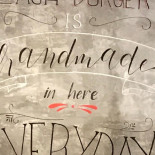 BURGER
IS
handmade
in here
EVERYDAY